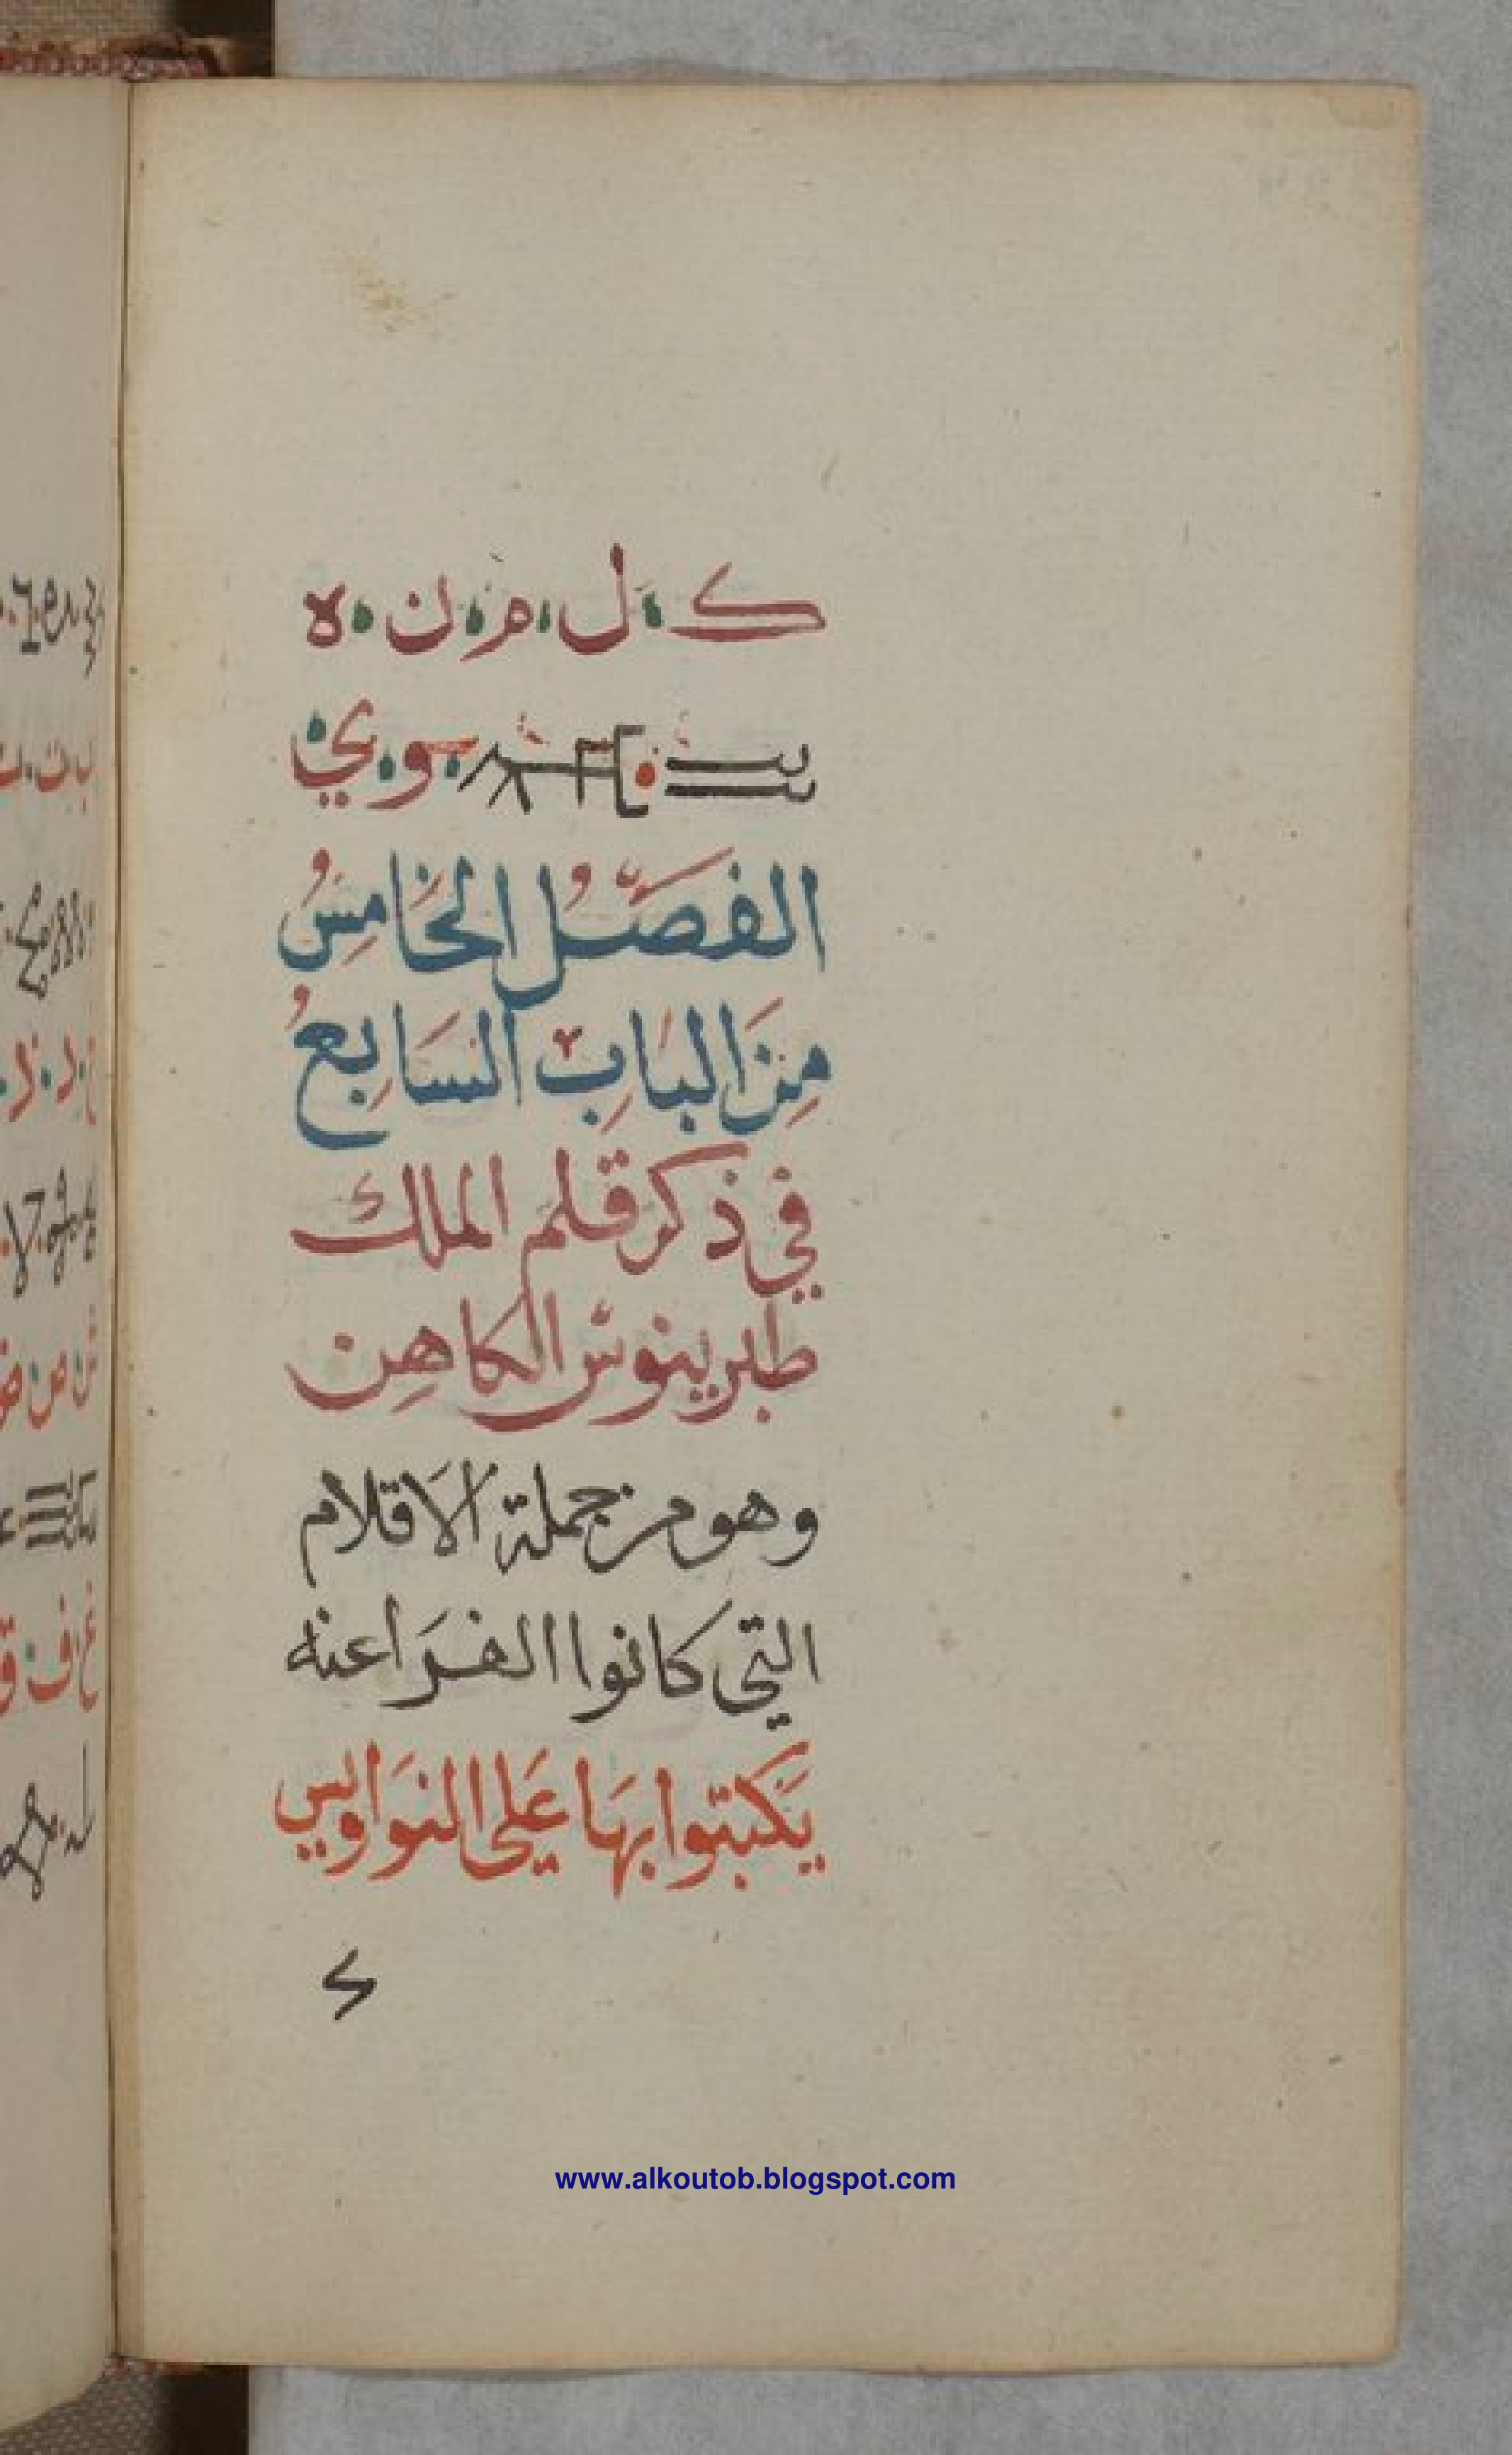 ك ل م ن ه
و ي
الفصل الخامسُ
مِنَ البابِ السَابعُ
في ذكر قلم الملك
طبرينوس الكاهِن
وهو من جملة الاقلام
التي كانوا الفرَاعنه
يَكتبوا بهَا عَلى النوَاويس
www.alkoutob.blogspot.com